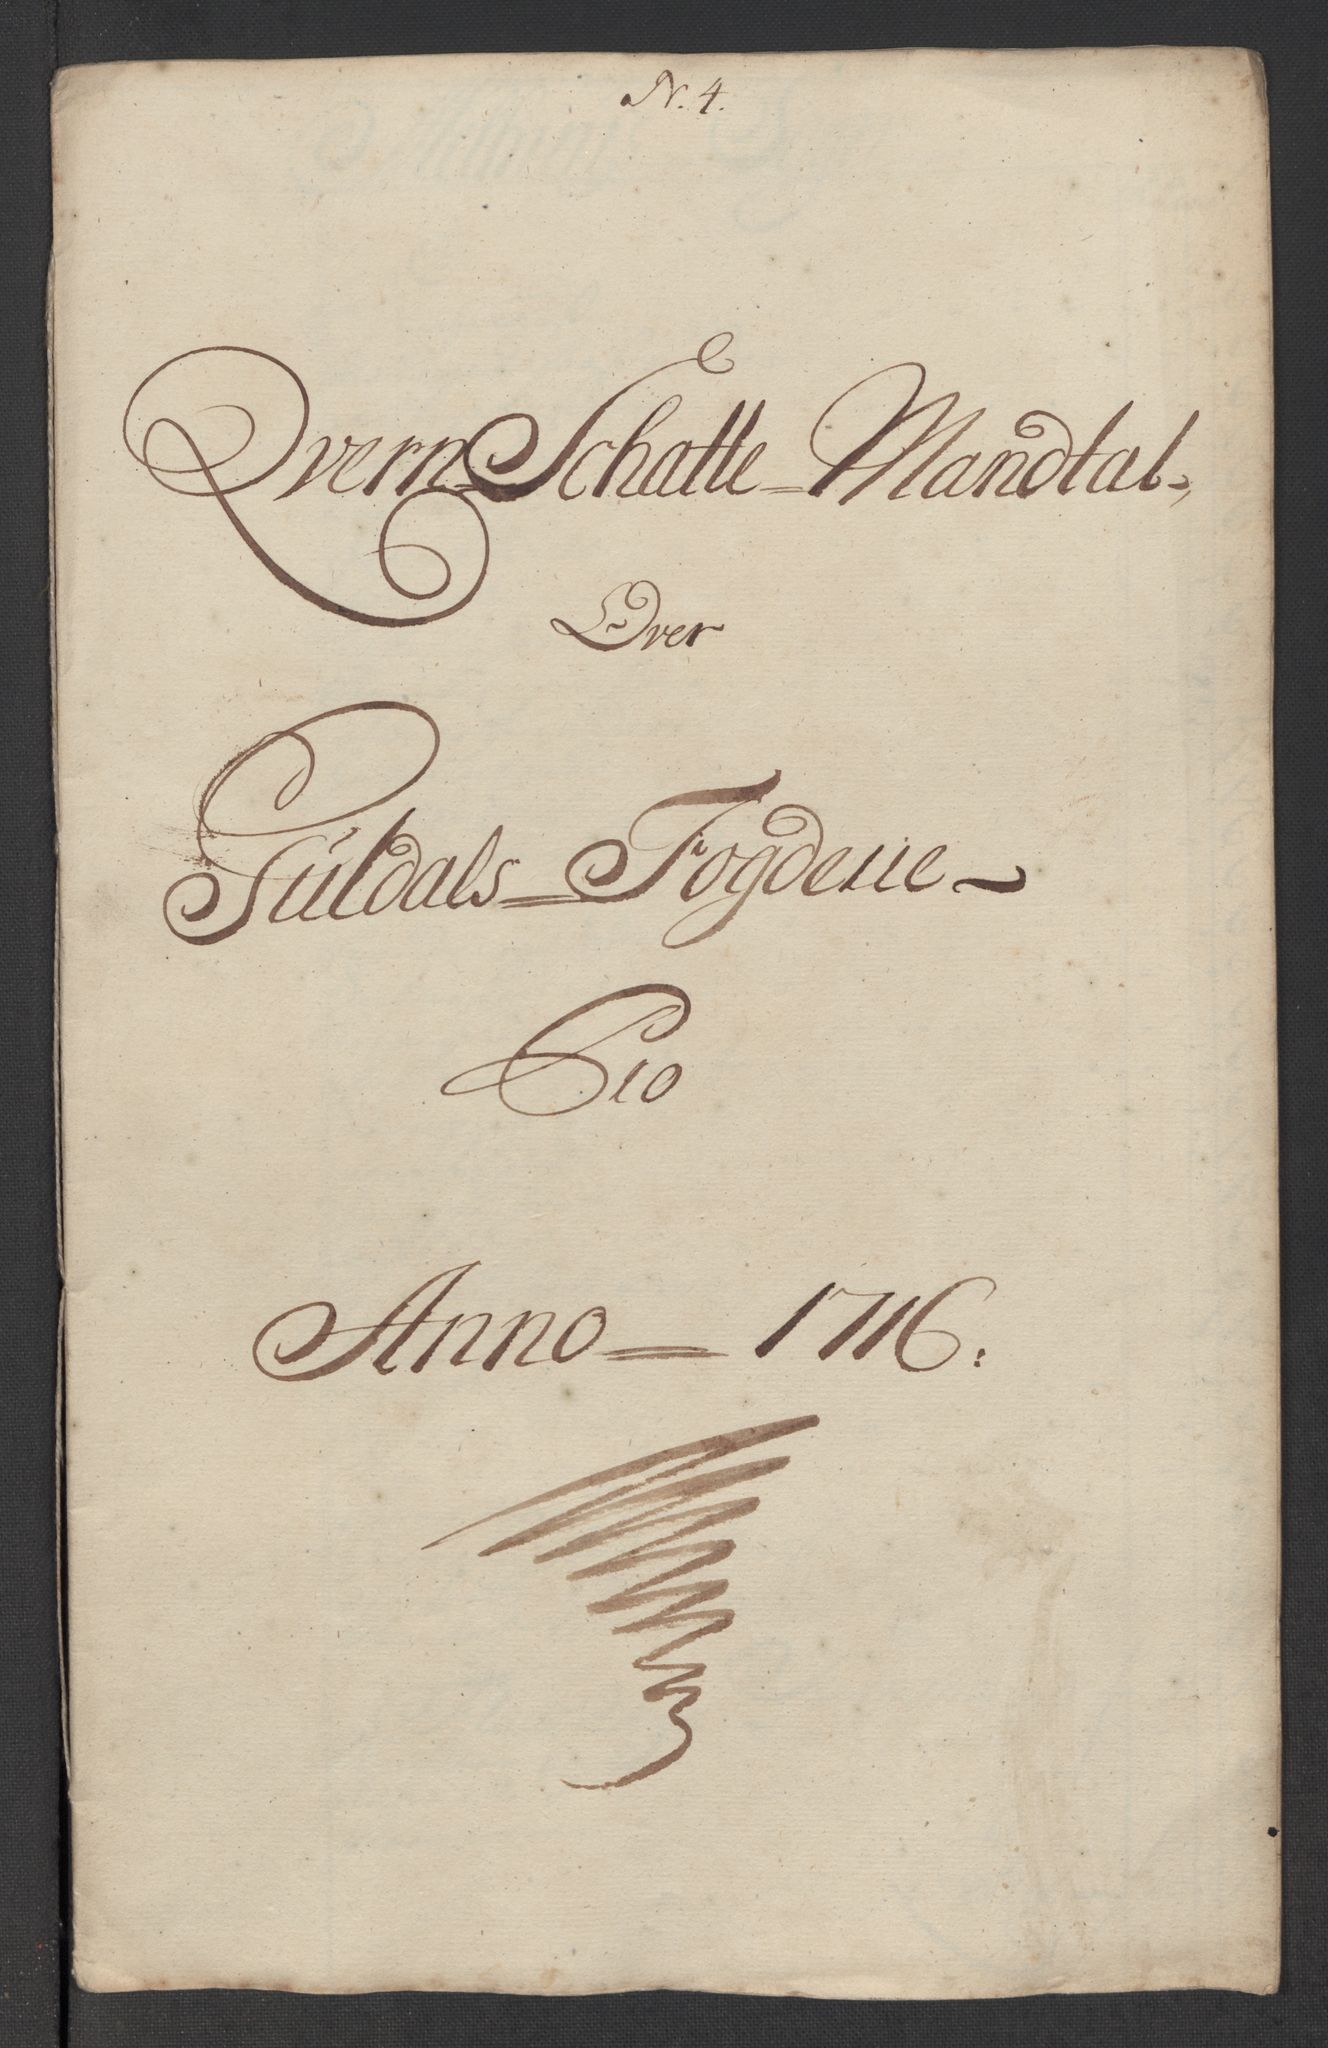 N. 4.
Qvern Schatte-Mandtal.
Over
Guldals=Fogderie
Pro
Anno=1716.